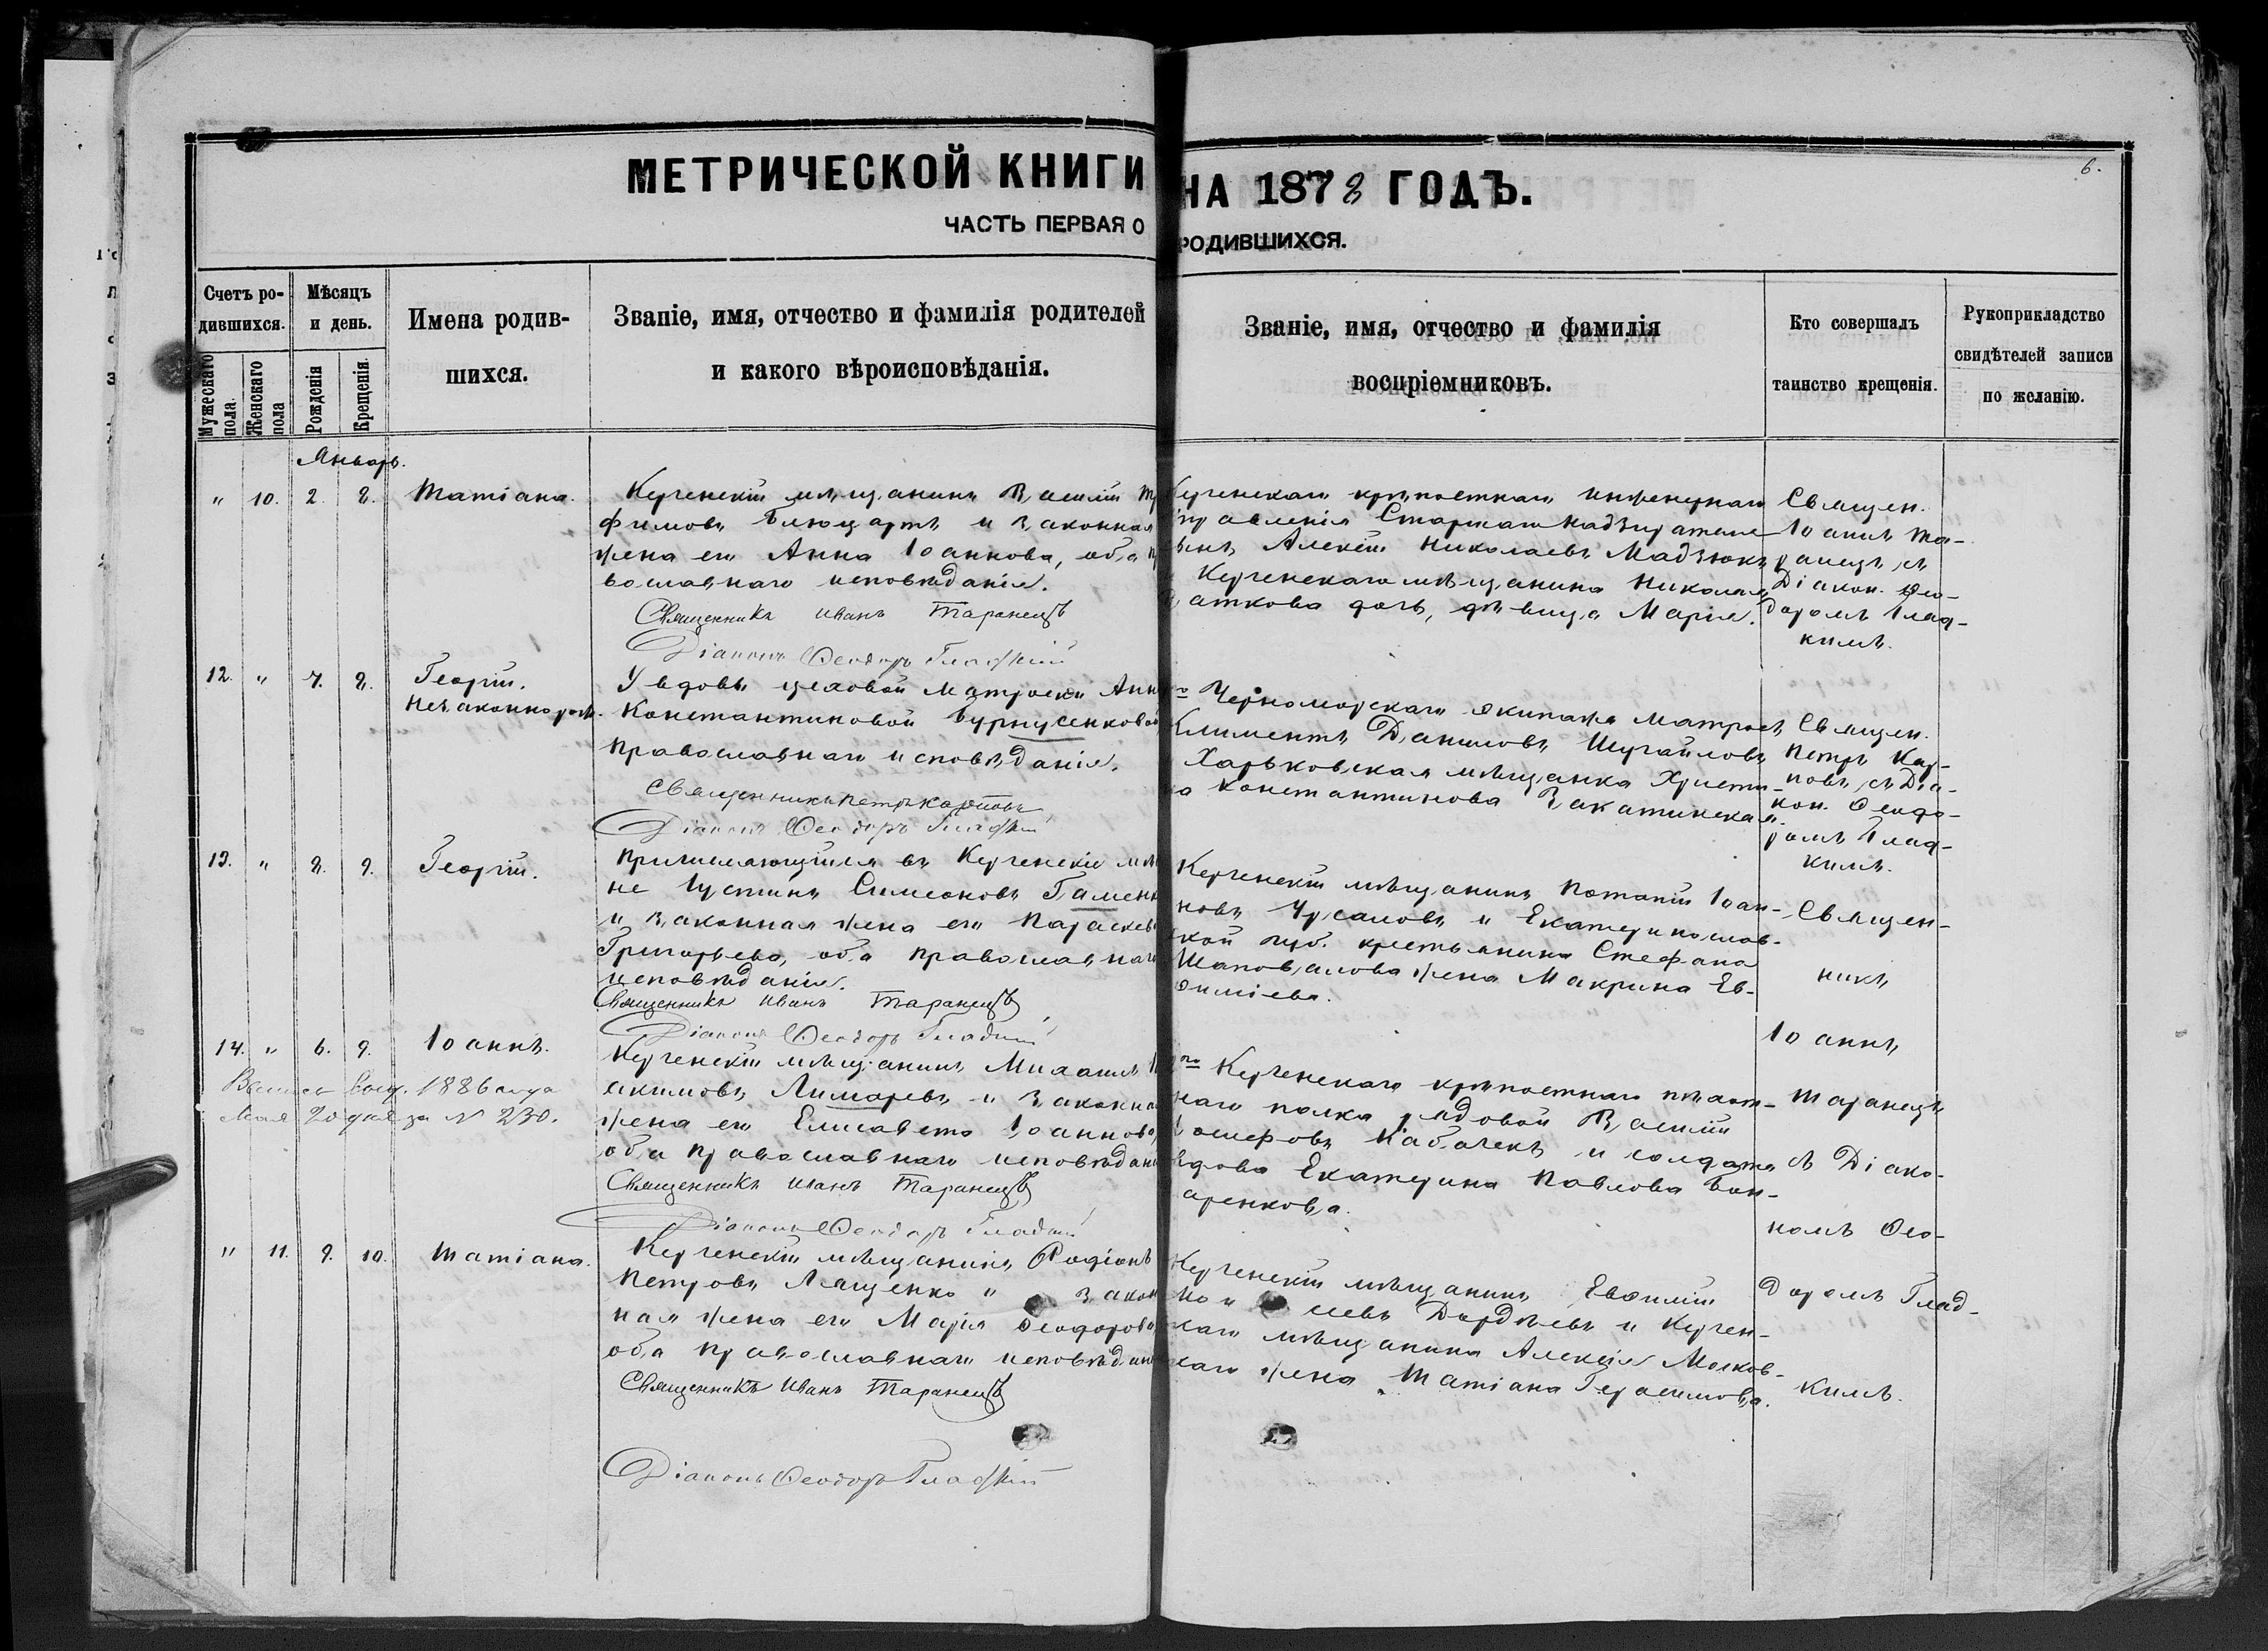 МЕТРИЧЕСКОЙ КНИГИ НА 1878 ГОДЪ.
6.
ЧАСТЬ ПЕРВАЯ О РОДИВШИХСЯ.
Счетъ ро-
дившихся.
Мужескаго пола.
Женскаго пола
Мѣсяцъ
и день.
Рожденія
Крещенія.
Имена родив-
шихся.
Званіе, имя, отчество и фамилія родителей
и какого вѣроисповѣданія.
Званіе, имя, отчество и фамилія
воспріемниковъ.
Кто совершалъ
таинство крещенія.
Рукоприкладство
свидѣтелей записи
по желанію.
Январь.
" 10. 2. 8. Татіана.
Керченскій мѣщанинъ Василій
фимовъ и законная
жена его Анна Іоаннова, оба
вославнаго исповѣданія.
Священникъ Иванъ Таранецъ
Діаконъ Ѳеодоръ Гладкій
Керченскаго крѣпостнаго инженернаго
правленія Старшаго надзирателя
сынъ Алексій Николаевъ Мадзюкъ
Керченскаго мѣщанина Николая
дочь, дѣвица Марія.
Священ.
Іоаннъ Та-
ранецъ съ
Діакон. Ѳео-
доромъ Глад-
кимъ.
12. " 7. 8. Георгій.
Незаконнорож.
У вдовы цеховой матроски Анны
Константиновой Бурнусенковой
православнаго исповѣданія.
Священникъ Петръ Карповъ
Діаконъ Ѳеодоръ Гладкій
Черноморскаго экипажа матросъ
Климентъ Даниловъ Шугайловъ
Харьковская мѣщанка Христи-
на Константинова Закатинская.
Священ.
Петръ Кар-
повъ съ Діа-
кон. Ѳеодо-
ромъ Глад-
кимъ.
13. " 8. 9. Георгій.
Причисляющійся въ Керченскіе мѣ
не Іустинъ Симеоновъ
и законная жена его Параскева
Григорьева, оба православнаго
исповѣданія.
Священникъ Иванъ Таранецъ
Діаконъ Ѳеодоръ Гладкій
Керченскій мѣщанинъ Потапій Іоан-
новъ Чусаловъ и Екатеринослав-
ской губ. крестьянина Стефана
Шаповалова жена Макрина Ев-
ѳиміева.
Священ-
никъ
Іоаннъ
Таранецъ
съ Діако-
номъ Ѳео-
доромъ Глад-
кимъ.
14. " 6. 9. Іоаннъ.
1886 года
Мая 20 дня за N 230.
Керченскій мѣщанинъ Михаилъ
акимовъ Лимаревъ и законная
жена его Елисавета Іоаннова,
оба православнаго исповѣдані
Священникъ Иванъ Таранецъ
Діаконъ Ѳеодоръ Гладкій
Керченскаго крѣпостнаго пѣхот-
наго полка рядовой Василій
Іосифовъ Кабачекъ и солдата
вдова Екатерина Павлова Бон-
аренкова.
" 11. 9. 10. Татіана.
Керченскій мѣщанинъ Родіонъ
Петровъ Лященко и закон
ная жена его Марія Ѳеодорова
оба православнаго исповѣдан
Священникъ Иванъ Таранецъ
Діаконъ Ѳеодоръ Гладкій
Керченскій мѣщанинъ Евѳимій
сеевъ Дордѣевъ и Керчен-
скаго мѣщанина Алексія Москов-
скаго жена Татіана Герасимова.